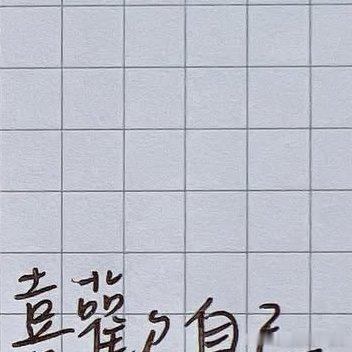 喜歡自己